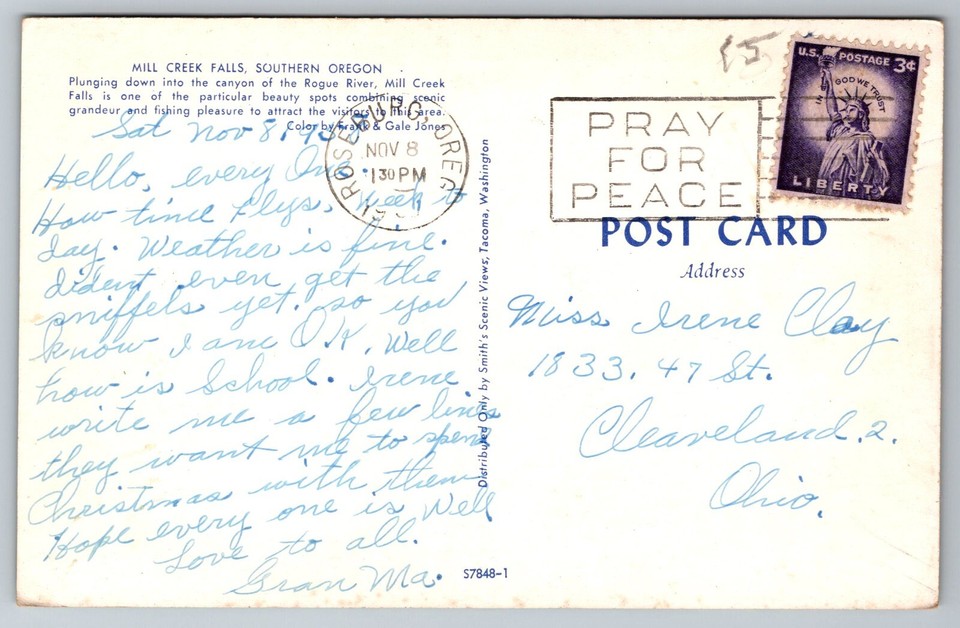 MILL CREEK FALLS, SOUTHERN OREGON
Plunging down into the canyon of the Rogue River, Mill Creek
Falls is one of the particular beauty spots combining scenic
grandeur and fishing pleasure to attract the visitors to this area.
Color by Frank & Gale Jones
Sat Nov 8, 1958
Hello, every One.
How time flys, week to
day. Weather is fine.
dident even get the
sniffels yet. so you
know I am O.K. Well
how is School. Irene
write me a few lines
they want me to spend
Christmas with them
Hope every one is Well
Love to all.
Gran Ma.
ROSEBURG, OREG
NOV 8
1 30 PM
Distributed Only by Smith's Scenic Views, Tacoma, Washington
S7848-1
PRAY
FOR
PEACE
U.S. POSTAGE 3¢
IN GOD WE TRUST
LIBERTY
POST CARD
Address
Miss Irene Clay
1833. 47 St.
Cleaveland. 2.
Ohio.